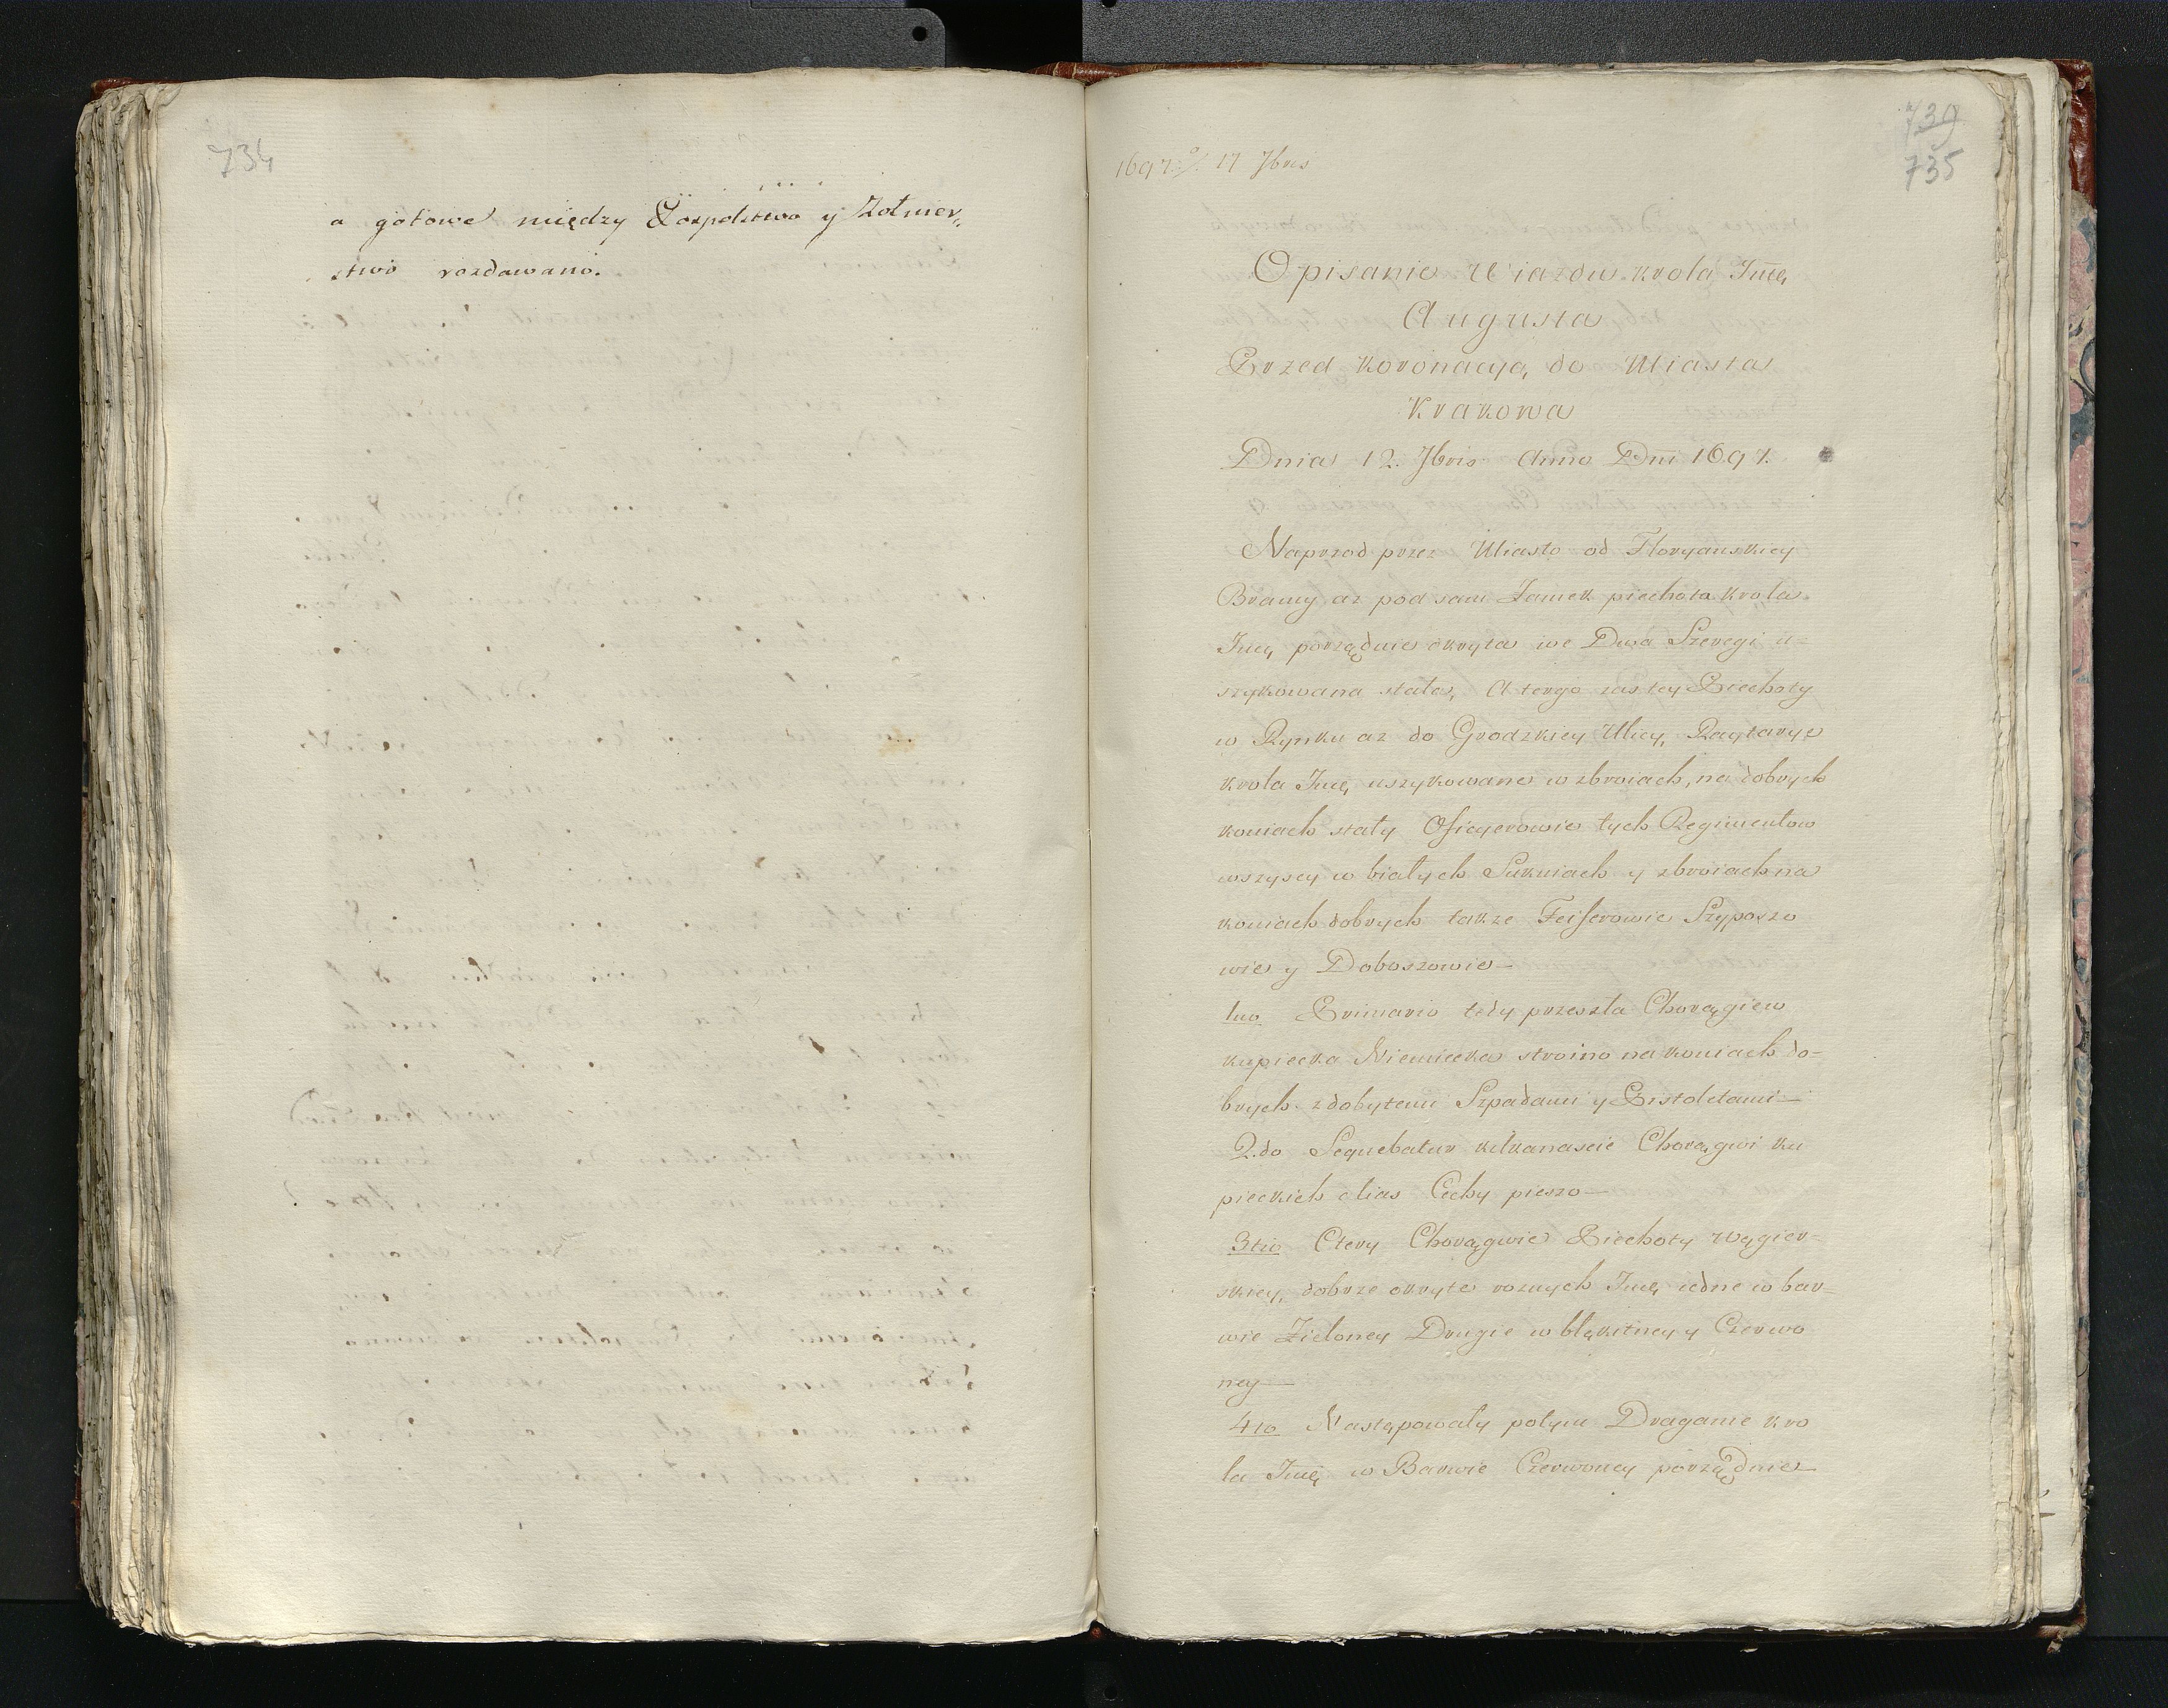 734
a gotowe między Pospolstwo y Zołnier,
stwo rozdawano.
739
735
1697 17 7bris
Opisanie Wiazdu krola Jmci
Augusta
Przed koronacyą do Miasta
Krakowa
Dnia 12. 7bris Anno Dni 1697.
Naprzod przez Miasto od Floryanskiey
Bramy az pod sam Zamek piechota krola
Jmci porządnie okryta we Dwa Szeregi u=
szykowana stała, A tergo zas tey Piechoty
w Rynku az do Grodzkiey Ulicy, Raytarye
krola Jmci uszykowane w zbroiach, na dobrych
koniach stały Oficyerowie tych Regimentow
wszyscy w białych Sukniach y zbroiach na
koniach dobrych takze Feiferowie Szyposzo
wie y Doboszowie—
1mo Primario tedy przeszła Chorągiew
kupiecka Niemiecka stroino na koniach do=
brych z dobytemi Szpadami y Pistoletami—
2.do Sequebatur kilkanascie Chorągwi ku
pieckich alias Cechy pieszo—
3tio Ctery Chorągwie Piechoty Węgier=
skiey, dobrze okryte roznych Jmci iedne w bar=
wie Zieloney Drugie w błękitney y Czerwo
ney—
4to Następowały potym Draganie kro
la Jmci w Barwie Czerwoney porządnie